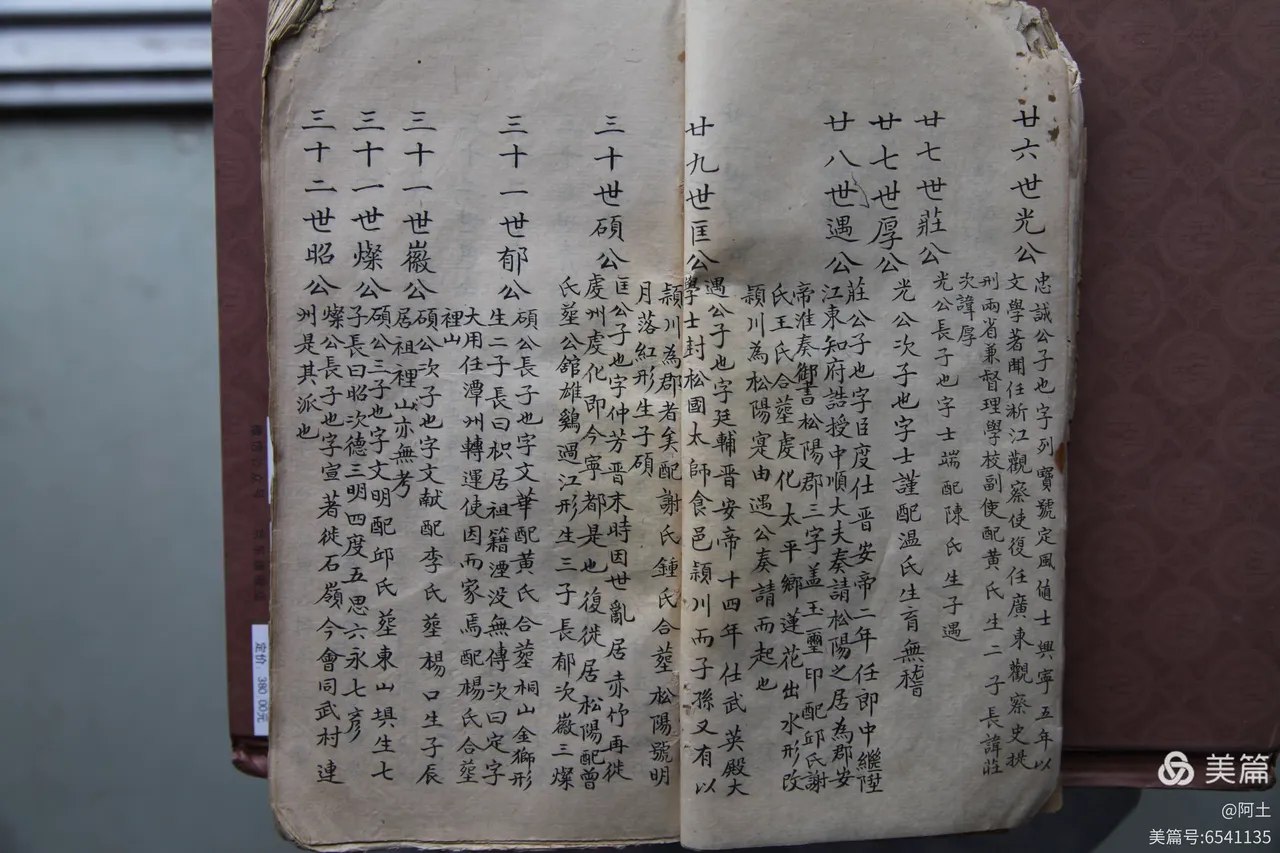 廿六世光公
忠誠公子也字列寶號定風値士興寧五年以
文學著聞任析江觀察使復任廣東觀察史挑
刑兩省兼督理學校副使配黃氏生二子長諱莊
次諱厚
廿七世莊公
光公長子也字士端配陳氏生子遇
廿七世厚公
光公次子也字士謹配温氏生育無稽
廿八世遇公
莊公子也字臣度仕晋安帝二年任郎中繼陞
江東知府誥授中順大夫奏請松陽之居為郡安
帝淮奏御書松陽郡三字盖玉璽印配邱氏謝
氏王氏合塟虔化太平鄉蓮花出水形改
頴川為松陽寔由遇公奏請而起也
廿九世匡公
遇公子也字廷輔晋安帝十四年仕武英殿大
學士封松國太師食邑頴川而子孫又有以
頴川為郡者矣配謝氏鍾氏合塟松陽號明
月落紅形生子碩
三十世碩公
匡公子也字仲芳晋末時因世亂居赤竹再徙
虔州虔化即今寧都是也復徙居松陽配曾
氏塟公館雄鷄過江形生三子長郁次徽三燦
三十一世郁公
碩公長子也字文華配黃氏合塟桐山金獅形
生二子長曰枳居祖籍湮没無傳次曰定字
大用任潭州轉運使因而家焉配楊氏合塟
裡山
三十一世徽公
碩公次子也字文献配李氏塟楊口生子辰
居祖裡山亦無考
三十一世燦公
碩公三子也字文明配邱氏塟東山垻生七
子長曰昭次德三明四度五思六永七彦
三十二世昭公
燦公長子也字宣著徙石嶺今會同武村連
洲是其派也
定价：380.00元
美篇
@阿土
美篇号:6541135